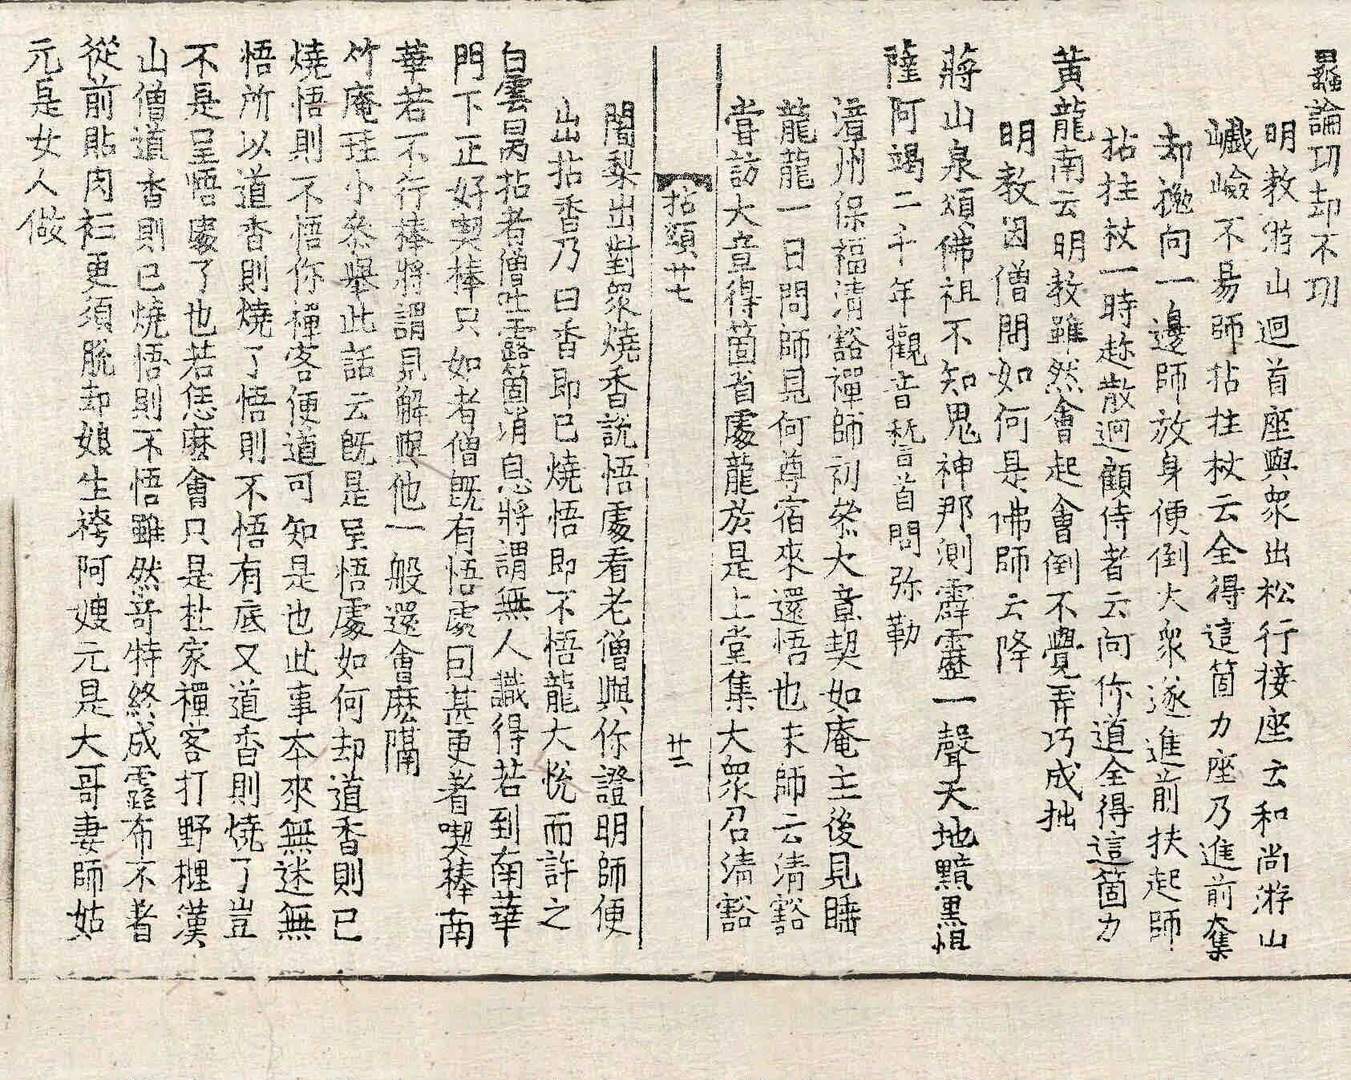 最論功却不功
明教游山迴首座與衆出松行接座云和尚游山
巇嶮不易師拈拄杖云全得這箇力座乃進前奪
却拋向一邊師放身便倒大衆遂進前扶起師
拈拄杖一時趂散迴顧侍者云向你道全得這箇力
黄龍南云明教雖然會起會倒不覺弄巧成拙
明教因僧問如何是佛師云降
蔣山泉頌佛祖不知鬼神那測霹靂一聲天地黯黑怛
薩阿竭二千年觀音稽首問弥勒
漳州保福清豁禪師初叅大章契如庵主後見睡
龍龍一日問師見何尊宿來還悟也未師云清豁
甞訪大章得箇省處龍於是上堂集大衆召清豁
拈頌廿七
廿二
闍梨出對衆燒香說悟處看老僧與你證明師便
出拈香乃曰香即已燒悟即不悟龍大悅而許之
白雲昺拈者僧吐露箇消息將謂無人識得若到南華
門下正好喫棒只如者僧旣有悟處曰甚更著喫棒南
華若不行棒將謂見解與他一般還會麽喝
竹庵珪小叅舉此話云旣是呈悟處如何却道香則已
燒悟則不悟你禪客便道可知是也此事本來無迷無
悟所以道香則燒了悟則不悟有底又道香則燒了豈
不是呈悟處了也若恁麽會只是杜家禪客打野榸漢
山僧道香則已燒悟則不悟雖然奇特終成露布不著
從前貼肉衫更須脫却娘生袴阿嫂元是大哥妻師姑
元是女人做